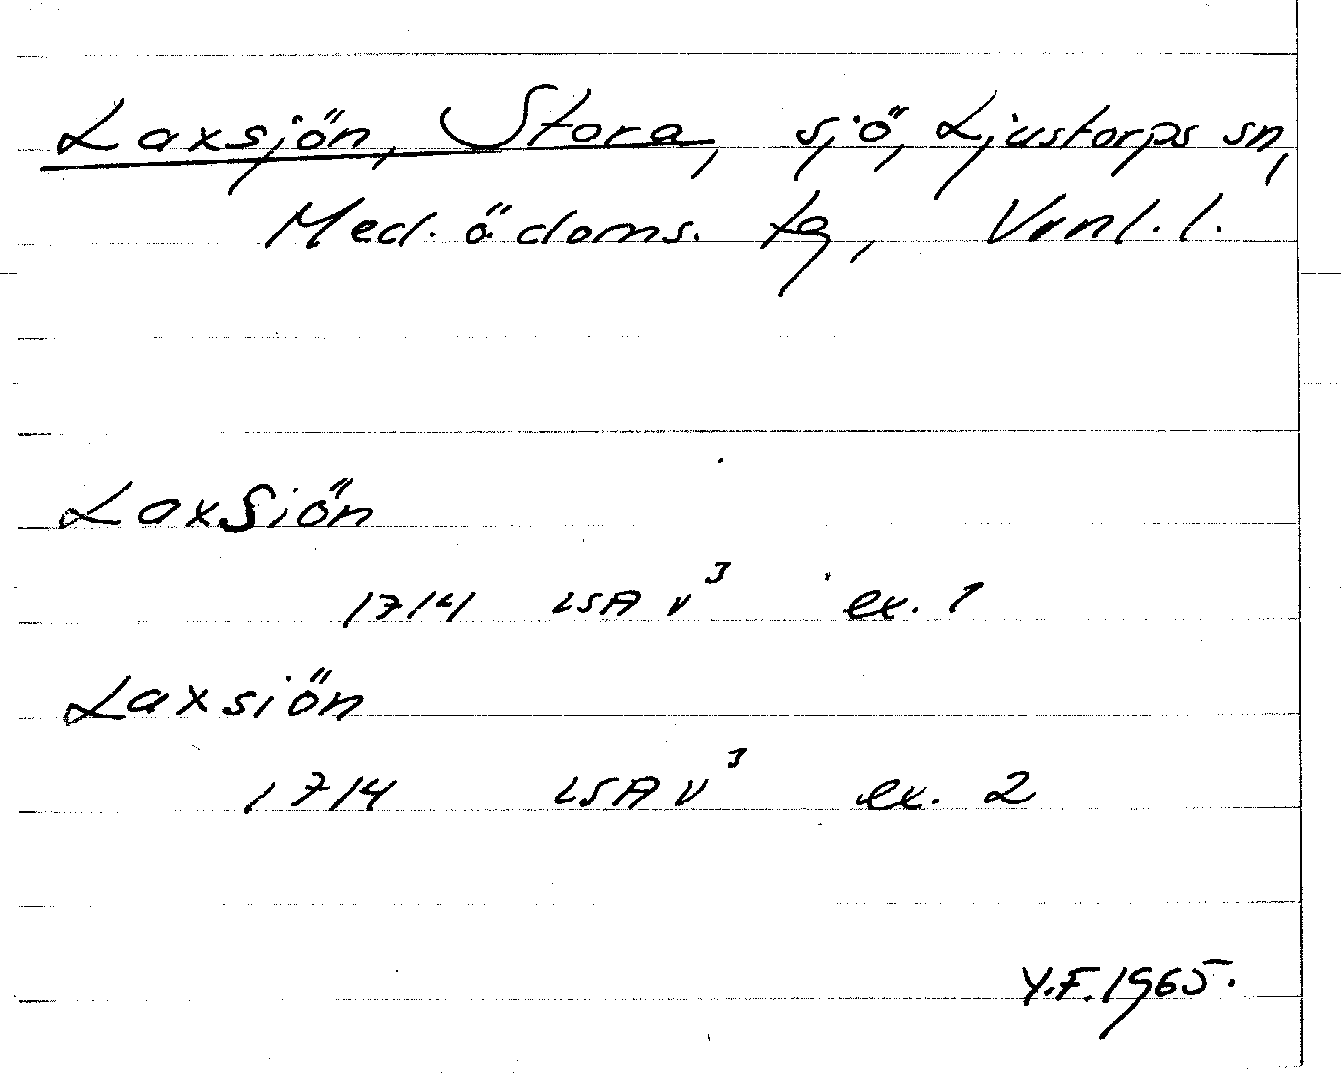 Laxsjön, Stora, sjö, Ljustorps sn,
Med. ö doms. tg, Vnl. l.
LaxSiön
1714 LSA V³ ex. 1
Laxsiön
1714 LSA V³ ex. 2
Y.F. 1965.